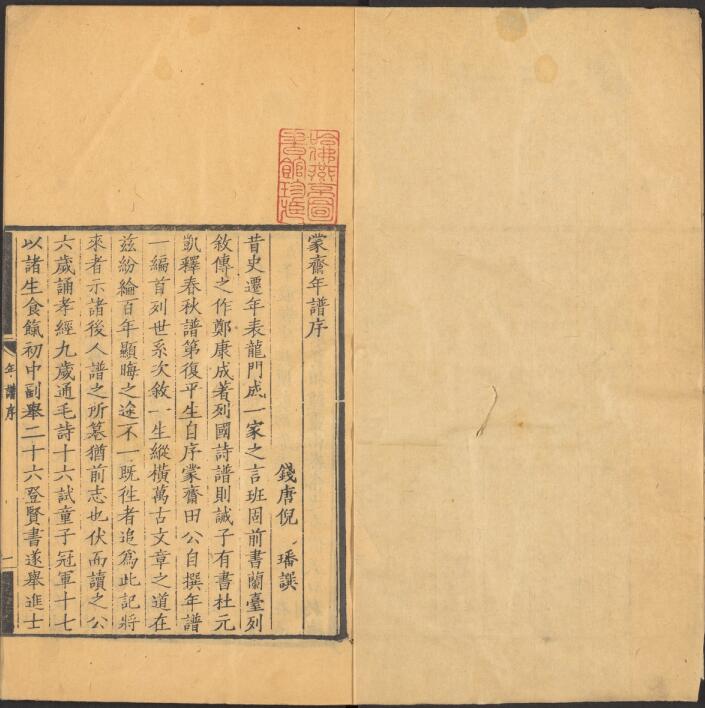 蒙齋年譜序
錢唐倪璠譔
昔史遷年表龍門成一家之言班固前書蘭臺列
敘傳之作鄭康成著列國詩譜則誡子有書杜元
凱釋春秋譜第復平生自序蒙齋田公自撰年譜
一編首列世系次敘一生縱橫萬古文章之道在
茲紛綸百年顯晦之途不一既徃者追爲此記將
來者示諸後人譜之所爲猶前志也伏而讀之公
六歲誦孝經九歲通毛詩十六試童子冠軍十七
以諸生食餼初中副舉二十六登賢書遂舉進士
年譜序
一
哈佛燕京圖
書館珍藏